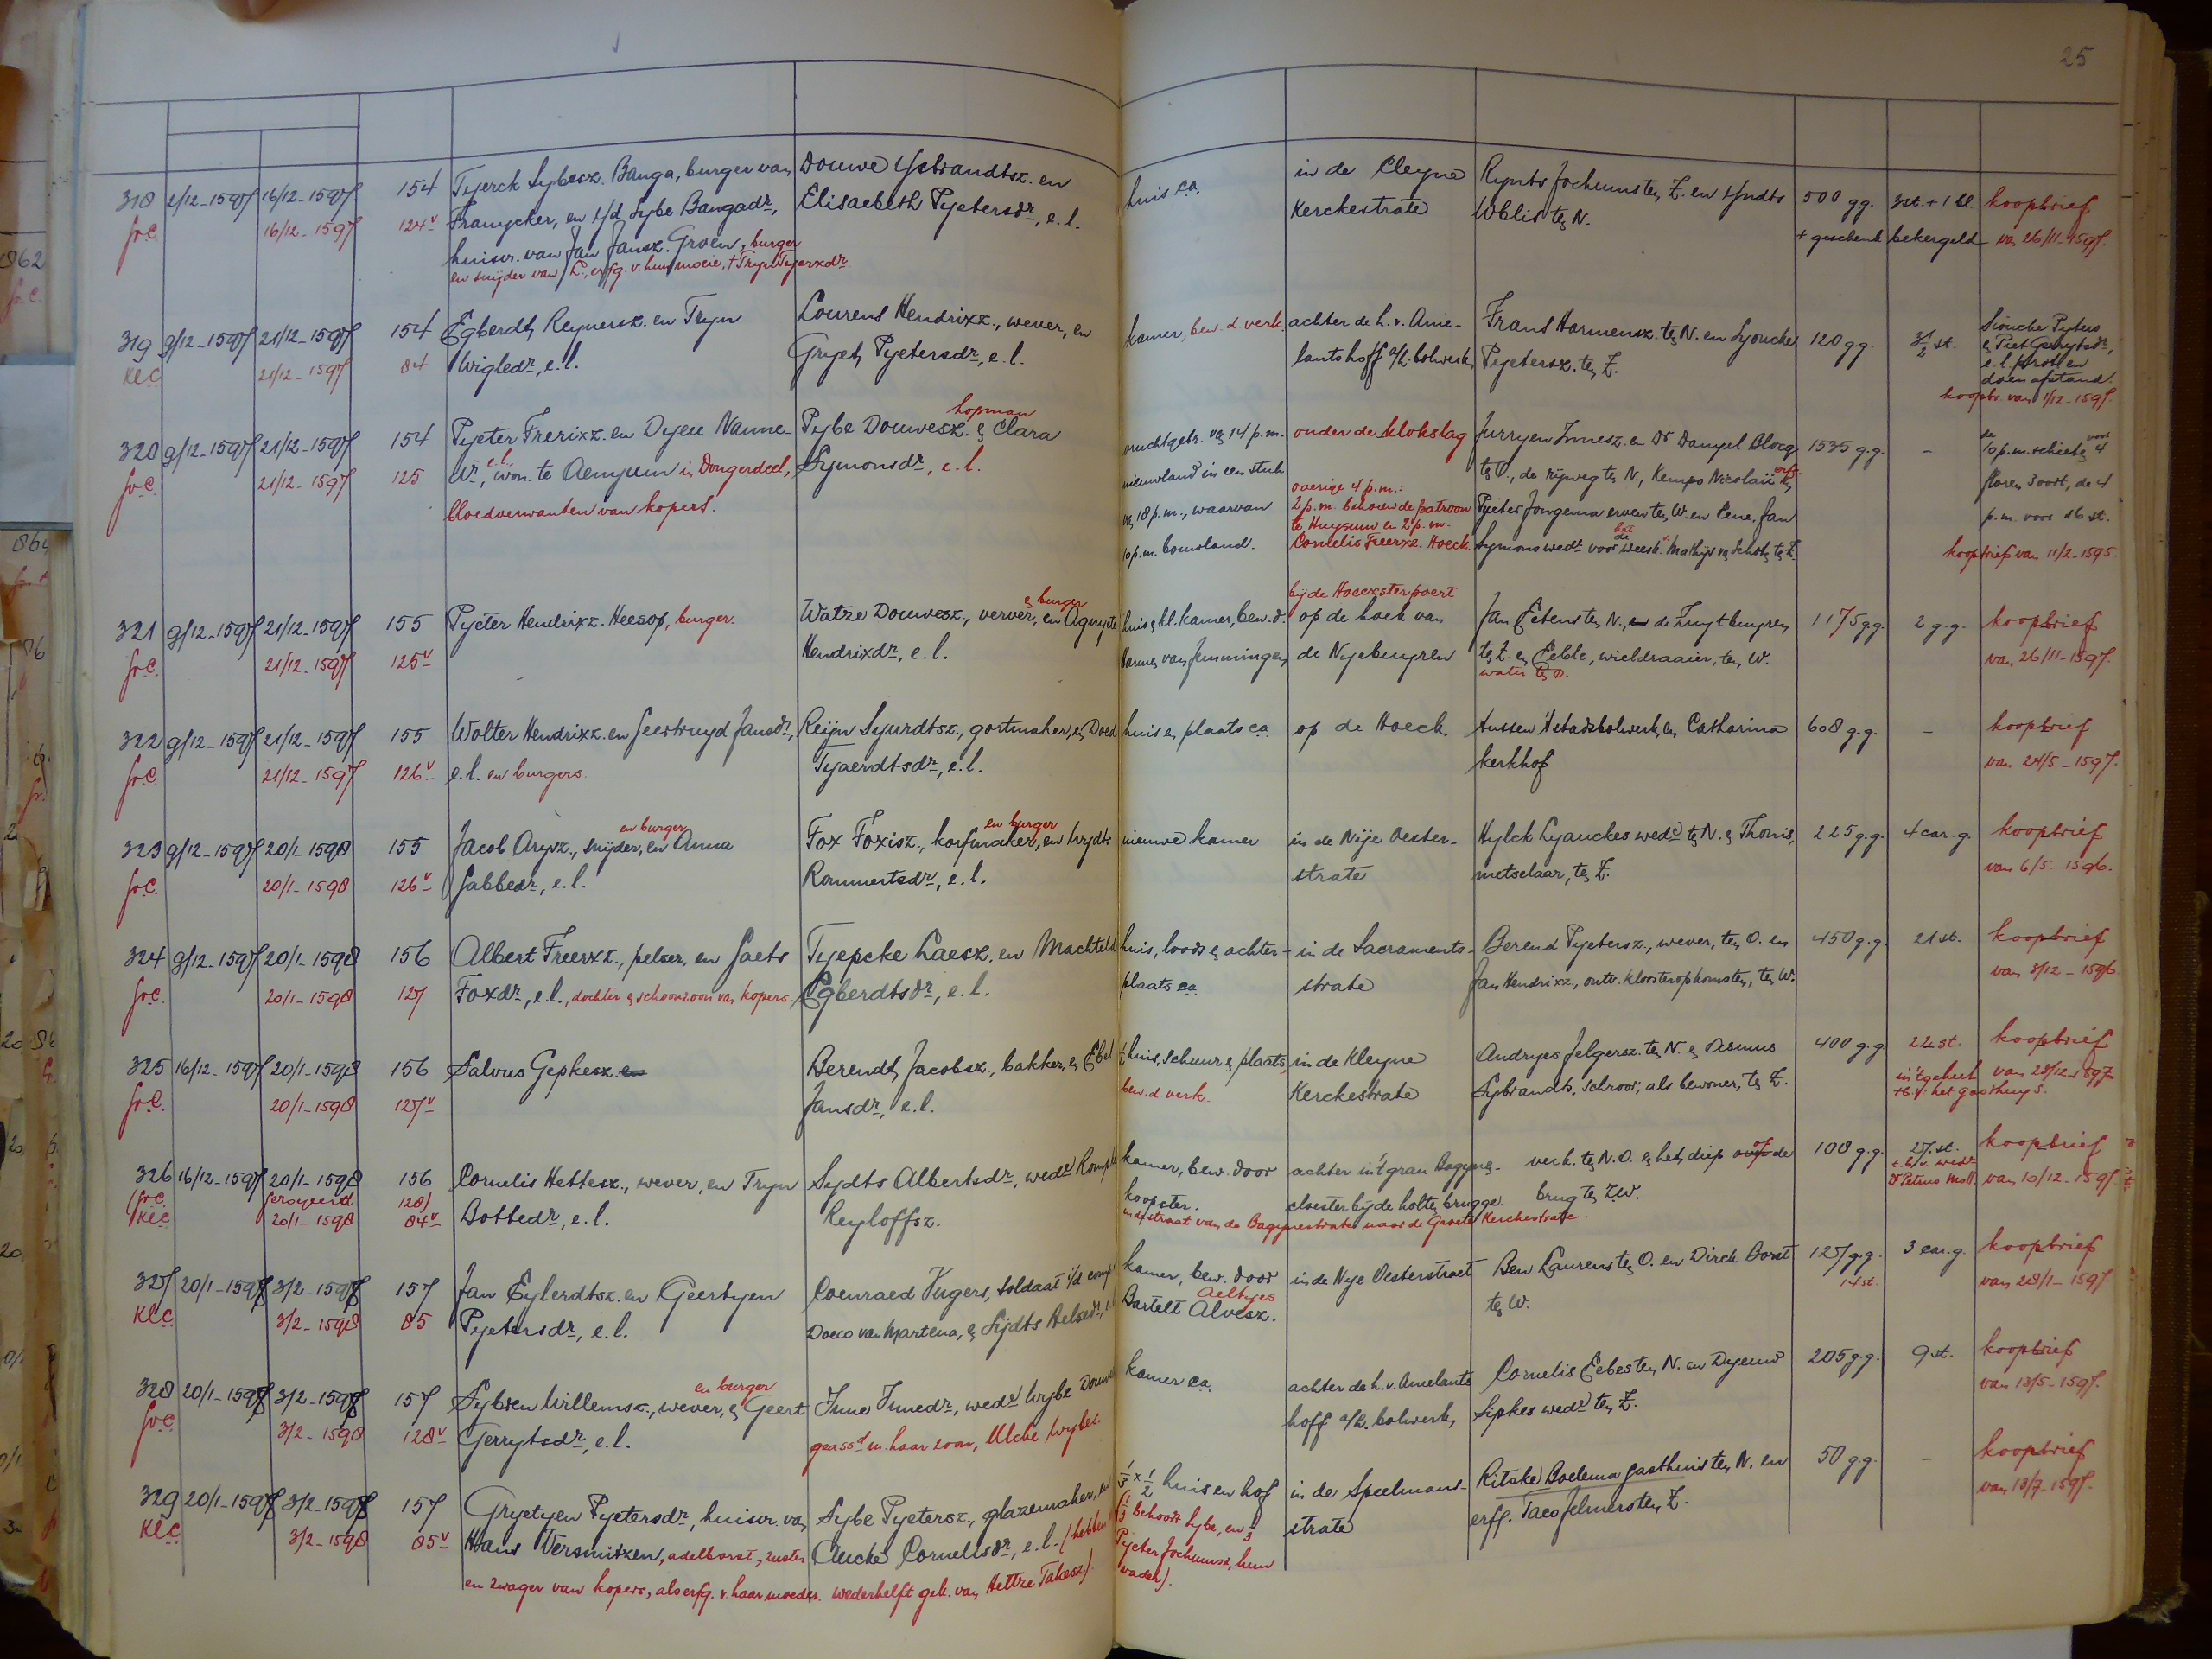 25
318 2/12-1597 16/12-1597 154 Tyerck Sybesz. Banga, burger van Douwe Ysbrandtsz. en huis ca. in de Cleyne Rynts Jochums te Z. en Yndts 500 gg. 3st. + 1 bl. koopbrief
fr.C. 16/12-1597 124v Franycker, en Yd Sybe Bangadr, Elisaebeth Pyetersdr, e.l. Kerckestrate Wblis te N. + geschenk bekergeld van 26/11-1597.
huisvr. van Jan Jansz. Groen, burger
en snijder van L., erfg. v. hun moeie, † Tryn Tyerxdr
319 9/12-1597 21/12-1597 154 Egberdt Reynersz. en Tryn Lourens Hendrixz., wever, en kamer, bew. d. verk. achter de h. v. Ame- Frans Harmensz. te N. en Syoucke 120 gg. 3½ st. Sioucke Pyters
KLC 21/12-1597 84 Wigledr, e.l. Gryet Pyetersdr, e.l. lantshoff a/h. bolwerk Pyetersz. te Z. & Piet Gerrytsdr,
e.l. prot. en
doen afstand.
koopbr. van 1/12-1597.
320 9/12-1597 21/12-1597 154 Pyeter Frerixz. en Dyeu Nanne- Pybe Douwesz. hopman & Clara vruchtgebr. van 14 p.m. onder de klokslag Jurryen Innesz. en Dr Danyel Blocq 1535 g.g. - de 10 p.m. schieten voor 4
fr.C. 21/12-1597 125 dr, e.l. won. te Aengum in Dongerdeel, Symonsdr, e.l. nieuwland in een stuk te O., de rijweg te N., Kempo Nicolaii erfg. & floren 3 oort, de 4
bloedverwanten van kopers. van 18 p.m., waarvan overige 4 p.m.: Pyeter Jongema erven te W. en Eene, Jan p.m. voor 16 st.
10 p.m. bouwland. 2 p.m. behoren de patroon te Huysum en 2 p.m. Cornelis Freerxz. Hoeck. Symons wedr voor de weesk. Mathijs van Schot te Z. koopbrief van 11/2-1595.
321 9/12-1597 21/12-1597 155 Pyeter Hendrixz. Heesop, burger. Watze Douwesz., verver, & burger en Agnyete huis & kl. kamer, bew. d. bij de Hoecxster poert op de hoek van Jan Ebens te N., de Zuytbuyren 1175 g.g. 2 g.g. koopbrief
fr.C. 21/12-1597 125v Hendrixdr, e.l. Harmen van Jemmingen de Nyebuyren te Z. en Eeble, wieldraaier, te W. van 26/11-1597.
water te O.
322 9/12-1597 21/12-1597 155 Wolter Hendrixz. en Geertruyd Jansdr, Reijn Syurdtsz., gortmaker, en Doed huis en plaats ca. op de Hoeck tussen 't stadsbolwerk en Catharina 608 g.g. - koopbrief
fr.C. 21/12-1597 126v e.l. en burgers. Tyaerdtsdr, e.l. kerkhof van 24/5-1597.
323 9/12-1597 20/1-1598 155 Jacob Arysz., snijder, en burger en Anna Fox Foxisz., korfmaker, en burger en Wydts nieuwe kamer in de Nije Oester- Hylck Lyanckes wedr te N. & Thonis, 225 g.g. 4 car. g. koopbrief
fr.C. 20/1-1598 126v Gabbedr, e.l. Rommertsdr, e.l. strate metselaar, te Z. van 6/5-1596.
324 9/12-1597 20/1-1598 156 Albert Freerxz., pelser, en Jaets Tyepcke Laesz. en Machteld huis, loods & achter- in de Sacraments- Berend Pyetersz., wever, te O. en 450 g.g. 21 st. koopbrief
fr.C. 20/1-1598 127 Foxdr, e.l., dochter & schoonzoon van kopers. Egberdtsdr, e.l. plaats ca. strate Jan Hendrixz., ontv. kloosteropkomsten, te W. van 3/12-1596.
325 16/12-1597 20/1-1598 156 Salvus Gepkesz. Berendt Jacobsz., bakker, & Ebel ½ huis, schuur & plaats, in de Kleyne Andryes Jelgersz. te N. & Asmus 400 g.g. 22 st. koopbrief
fr.C. 20/1-1598 127v Jansdr, e.l. bew. d. verk. Kerckestrate Sybrandts, schroor, als bewoner, te Z. in 't geheel t.b.v. het gasthuys. van 28/12-1597
326 16/12-1597 20/1-1598 156 Cornelis Hettesz., wever, en Tryn Sydts Albertsdr, wedr Romple kamer, bew. door achter in 't grau Bagyne- verk. te N.O. & het diep of de 108 g.g. 27 st. koopbrief
(fr.C. geroyeerd 128) Bottedr, e.l. Reyloffsz. koopster. cloester bij de holte brugge. brug te Z.W. t.b.v. wedr van 10/12-1597.
KLC 20/1-1598 84v in d. straat van de Bagynestrate naar de Groote Kerckestrate. Dr Petrus Moll.
327 20/1-1598 3/2-1598 157 Jan Eylerdtsz. en Geertyen Coenraed Vugers, soldaat i/d comp. kamer, bew. door in de Nye Oesterstraet Ben Laurens te O. en Dirck Borst 127 g.g. 3 car. g. koopbrief
KLC 3/2-1598 85 Pyetersdr, e.l. Doeco van Martena, & Sijdts Aelsedr, Bartelt Aeltyes Alvesz. te W. 14 st. van 28/1-1597.
328 20/1-1598 3/2-1598 157 Sybren Willemsz., wever, en burger & Geert Inne Innedr, wedr Wybe Douwe kamer ca. achter de h. v. Amelants Cornelis Eebes te N. en Dyeuw 205 g.g. 9 st. koopbrief
fr.C. 3/2-1598 128v Gerrytsdr, e.l. geassd m. haar zoon, Ulcke Wybes. hoff a/h. bolwerk Sipkes wedr te Z. van 13/5-1597.
329 20/1-1598 3/2-1598 157 Gryetyen Pyetersdr, huisvr. van Sybe Pyetersz., glazemaker, en ⅓ x ½ huis en hof in de Speelmans- Ritske Boelema gasthuis te N. en 50 g.g. - koopbrief
KLC 3/2-1598 85v Hans Versmitzen, adelborst, zuster Aucke Cornelisdr, e.l. (hebben (⅓ behoort Sybe, en ⅓ strate erfg. Taco Jelmers te Z. van 13/7-1597.
en zwager van kopers, als erfg. v. haar moeder. wederhelft gek. van Hettze Takesz.) Pyeter Jochumsz, hun
vader).